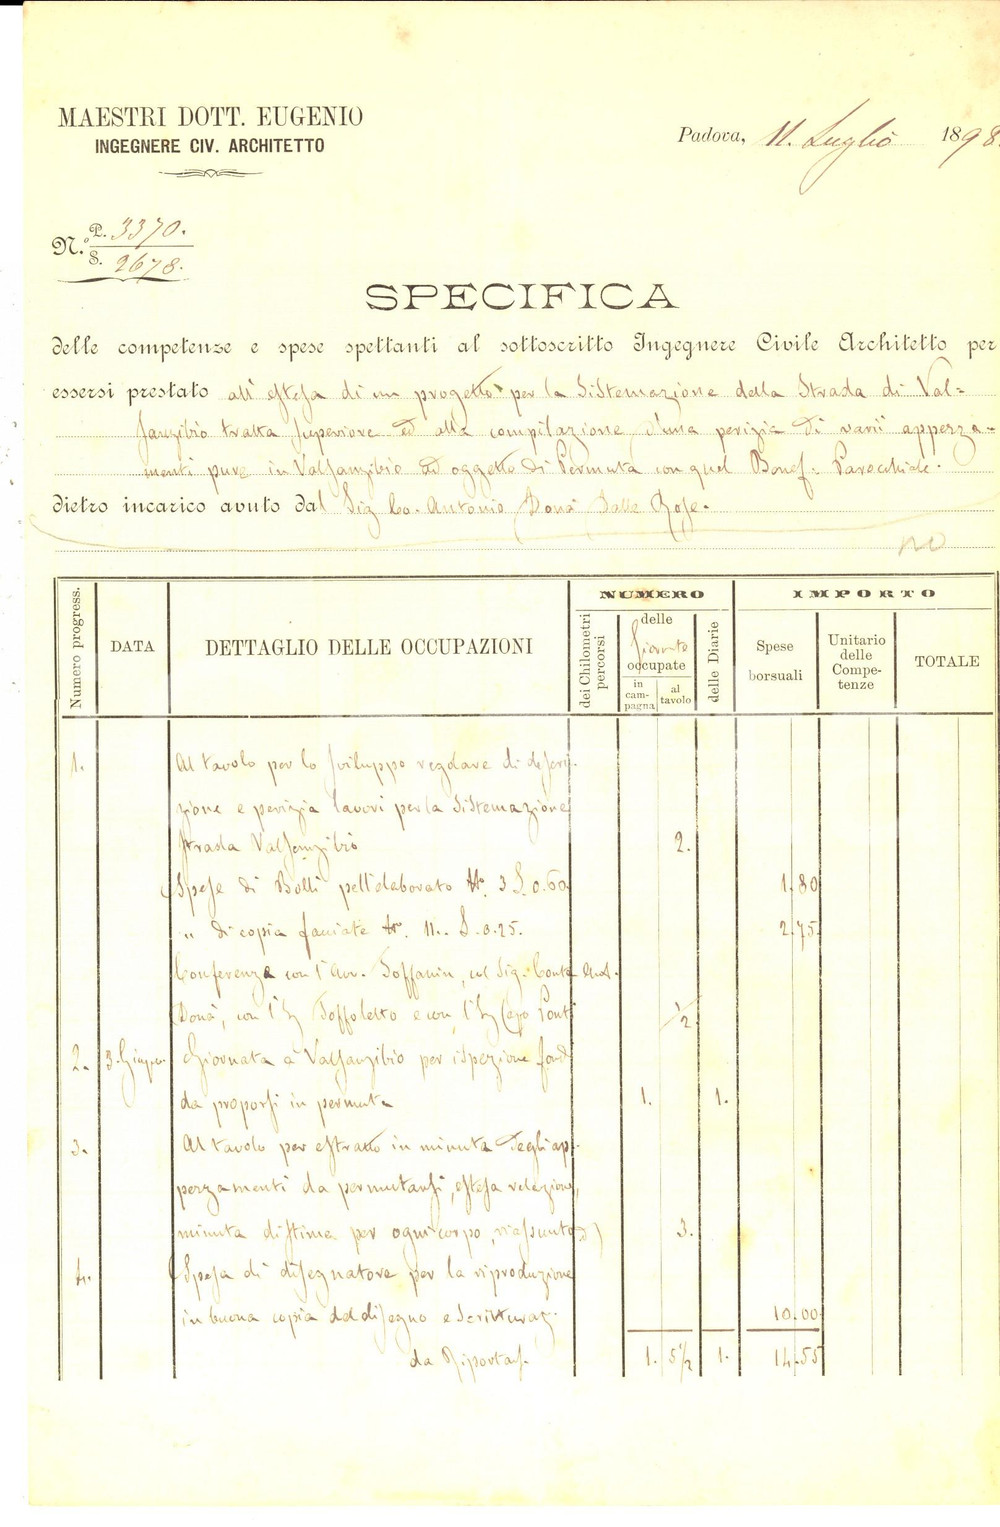 MAESTRI DOTT. EUGENIO
INGEGNERE CIV. ARCHITETTO
Padova, 11. Luglio 1898.
N.° P. 3370.
S. 2678.
SPECIFICA
delle competenze e spese spettanti al sottoscritto Ingegnere Civile Architetto per
essersi prestato all'estesa di un progetto per la Sistemazione della Strada di Val=
sanzibio tratta superiore ed alla compilazione d'una perizia di varii appezza-
menti pure in Valsanzibio ad oggetto di Permuta con quel Benef: Parocchiale.
dietro incarico avuto dal Sig Co. Antonio Donà Dalle Rose.
Numero progress.
DATA
DETTAGLIO DELLE OCCUPAZIONI
NUMERO
dei Chilometri percorsi
delle Giornate occupate
in cam-pagna
al tavolo
delle Diarie
IMPORTO
Spese borsuali
Unitario delle Compe-tenze
TOTALE
1. Al tavolo per lo sviluppo regolare di descri-
zione e perizia lavori per la Sistemazione
strada Valsanzibio 2.
Spese di Bolli pell'elaborato N. 3 L. 0.60 1.80
" di copia facciate N. 11.. L. 0.25. 2.75
Conferenza con l'Avv. Soffanin, col Sig. Conte Ant.
Donà, con l'Ig Toffoletto e con l'Ig Capo Ponti 1/2
2. 3. Giugno Giornata a Valsanzibio per ispezione fondi
da proporsi in permuta 1. 1.
3. Al tavolo per estratto in minuta degli ap-
pezzamenti da permutarsi, estesa relazione,
minuta di stima per ogni corpo, riassunto 3.
4. Spesa di disegnatore per la riproduzione
in buona copia del disegno e scritturaz. 10.00
da Riportarsi. 1. 5 1/2 1. 14.55